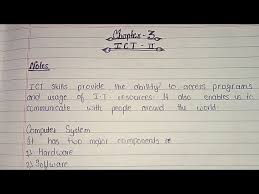 Chapter - 3
ICT - II
Notes
ICT skills provide the ability to access programs
and usage of I.T. resources. It also enables us to
communicate with people around the world.
Computer System
It has two major components :-
1) Hardware
2) Software